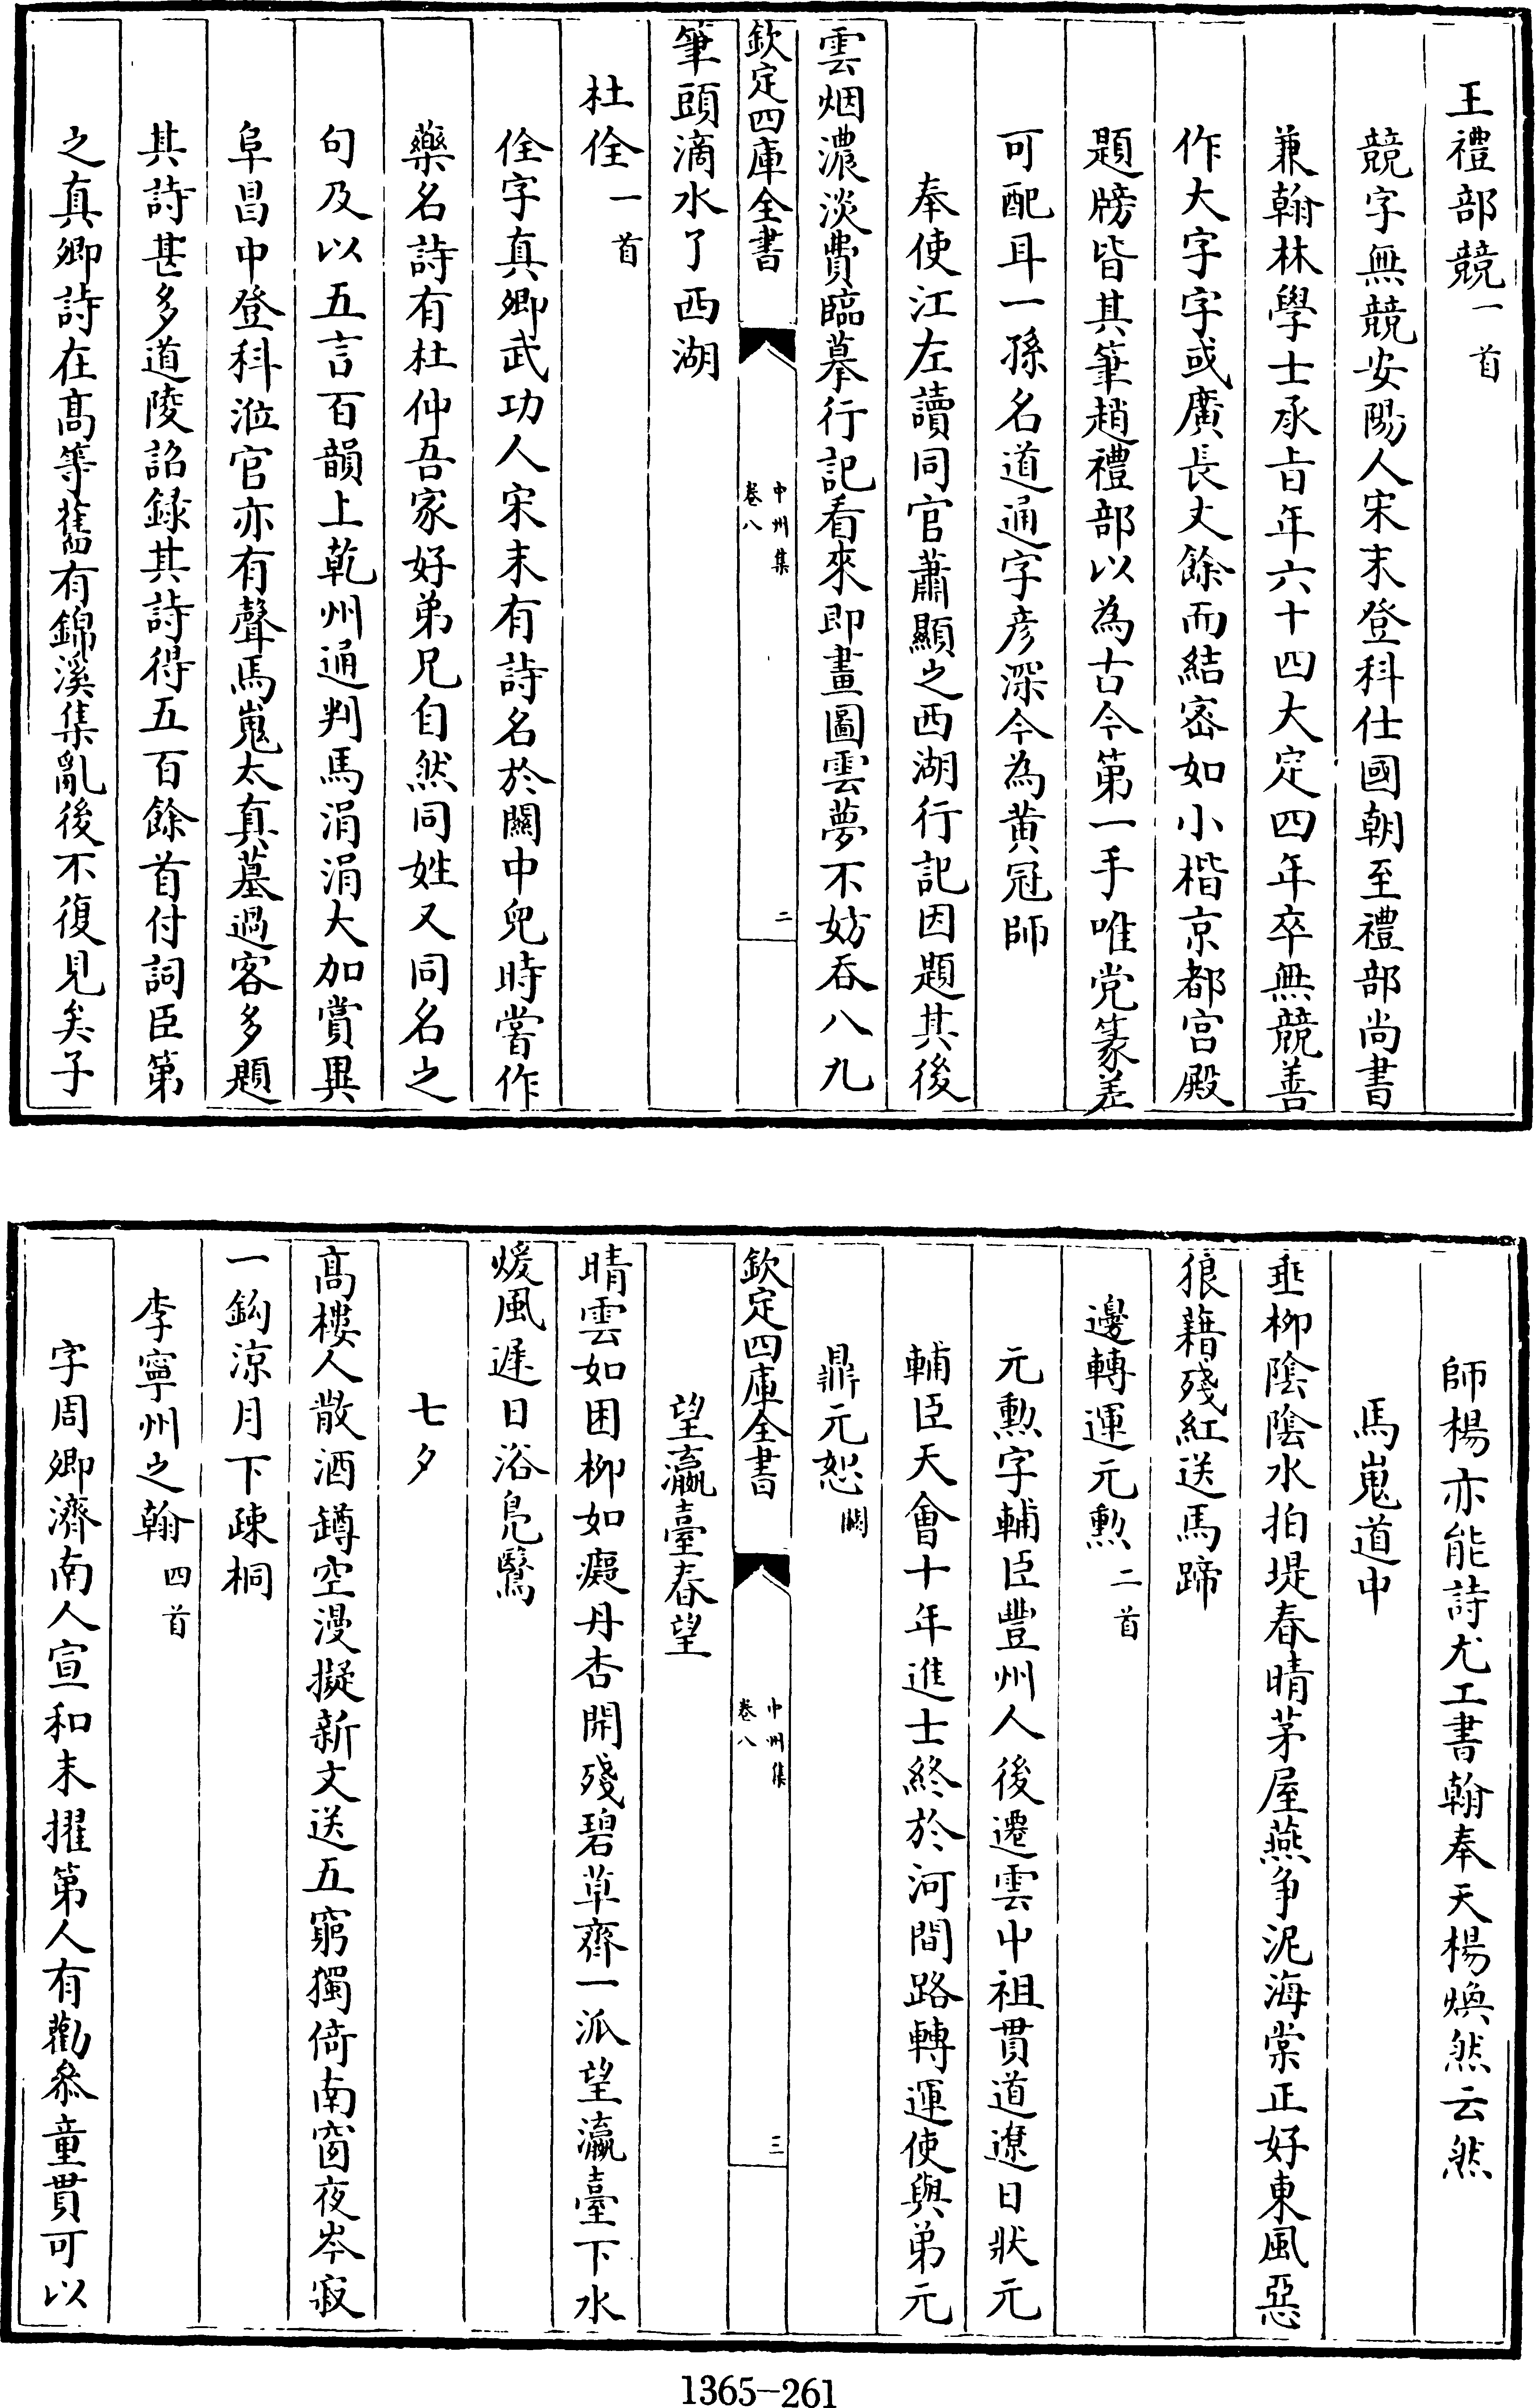 王禮部競一首
競字無競安陽人宋末登科仕國朝至禮部尚書
兼翰林學士承㫖年六十四大定四年卒無競善
作大字字或廣長丈餘而結宻如小楷京都宫殿
題牓皆其筆趙禮部以為古今第一手唯党篆差
可配耳一孫名道通字彦深今為黄冠師
奉使江左讀同官蕭顯之西湖行記因題其後
雲烟濃淡費臨摹行記看來即畫圖雲夢不妨吞八九
欽定四庫全書
中州集
卷八
二
筆頭滴水了西湖
杜佺一首
佺字真卿武功人宋末有詩名於闗中兒時嘗作
藥名詩有杜仲吾家好弟兄自然同姓又同名之
句及以五言百韻上乾州通判馬涓涓大加賞異
阜昌中登科涖官亦有聲馬嵬太真墓過客多題
其詩甚多道陵詔録其詩得五百餘首付詞臣第
之真卿詩在髙等舊有錦溪集亂後不復見矣子
師楊亦能詩尤工書翰奉天楊煥然云然
馬嵬道中
垂柳陰陰水拍堤春晴茅屋燕爭泥海棠正好東風惡
狼藉殘紅送馬蹄
邊轉運元勲二首
元勲字輔臣豐州人後遷雲中祖貫道遼日狀元
輔臣天會十年進士終於河間路轉運使與弟元
鼎元恕闕
欽定四庫全書
中州集
卷八
三
望瀛臺春望
晴雲如困柳如癡丹杏開殘碧草齊一派望瀛臺下水
煖風遲日浴鳬鷖
七夕
髙樓人散酒罇空漫擬新文送五窮獨倚南窗夜岑寂
一鈎涼月下疎桐
李寧州之翰四首
字周卿濟南人宣和末擢第人有勸叅童貫可以
1365-261